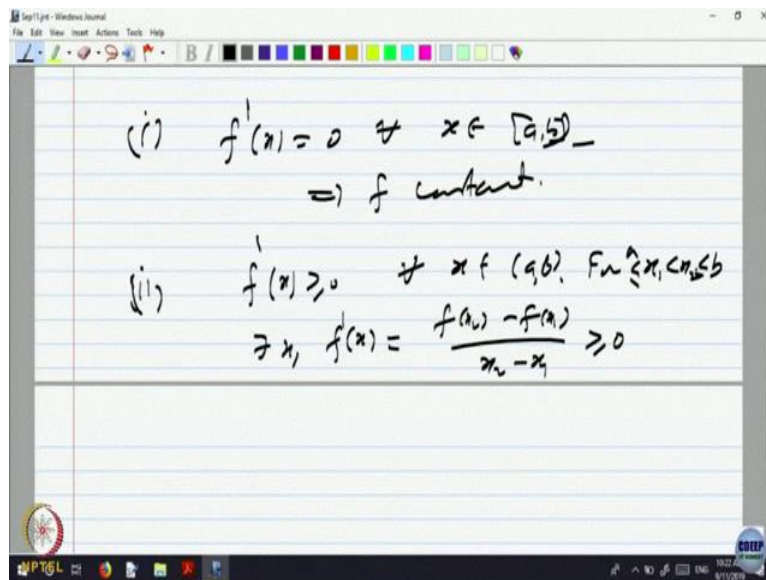 Sep11.jnt - Windows Journal
File Edit View Insert Actions Tools Help
B I
(i) f'(x) = 0 ∀ x ∈ [a,b]
=) f constant.
(ii) f'(x) ≥ 0 ∀ x ∈ (a,b). For a ≤ x₁ < x₂ ≤ b
∃ x, f'(x) = \frac{f(x₂) - f(x₁)}{x₂ - x₁} ≥ 0
NPTEL
CDEEP
ENG
10:22 A
9/11/2019